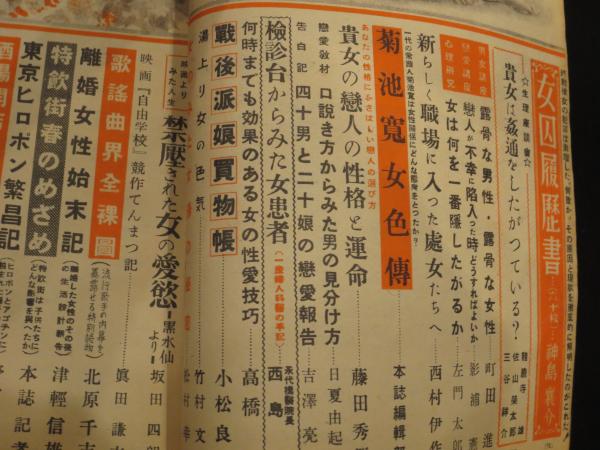 女囚履歴書
神島襄介
☆生理座談会☆
貴女は姦通をしたがつている?
龍膽寺雄
佐山榮太郎
三谷祥介
男女講座
露骨な男性・露骨な女性
町田進
戀愛講座
戀人が不幸に陷入つた時どうすればよいか
影浦憲
心理研究
女は何を一番隱したがるか
左門太郎
新らしく職場に入つた處女たちへ
西村伊作
菊池寛女色傳
本誌編輯部
あなたの性格にふさはしい戀人の選び方
貴女の戀人の性格と運命
藤田秀
戀愛教材
口說き方からみた男の見分け方
日夏由起
告白記
四十男と二十娘の戀愛報告
吉澤亮
檢診台からみた女患者
(一産婦人科醫の手記)
永代橋醫院長
西島
何時までも効果のある女の性愛技巧
高橋
戰後派娘買物帳
小松良
湯上り女の色気
竹村文
松村幸
映画より
みた人生
禁壓された女の愛慾
―黒水仙より―
坂田四郎
映画『自由学校』競作てんまつ記
眞田謙
歌謡曲界全裸圖
(流行歌手の内幕を暴露せる特別読物)
北原千
離婚女性始末記
(離婚した女性のその後の生活設計報告)
津輕信雄
特飲街春のめざめ
(特飲街は子供たちにどんな影響を與へたか)
本誌記者
東京ヒロポン繁昌記